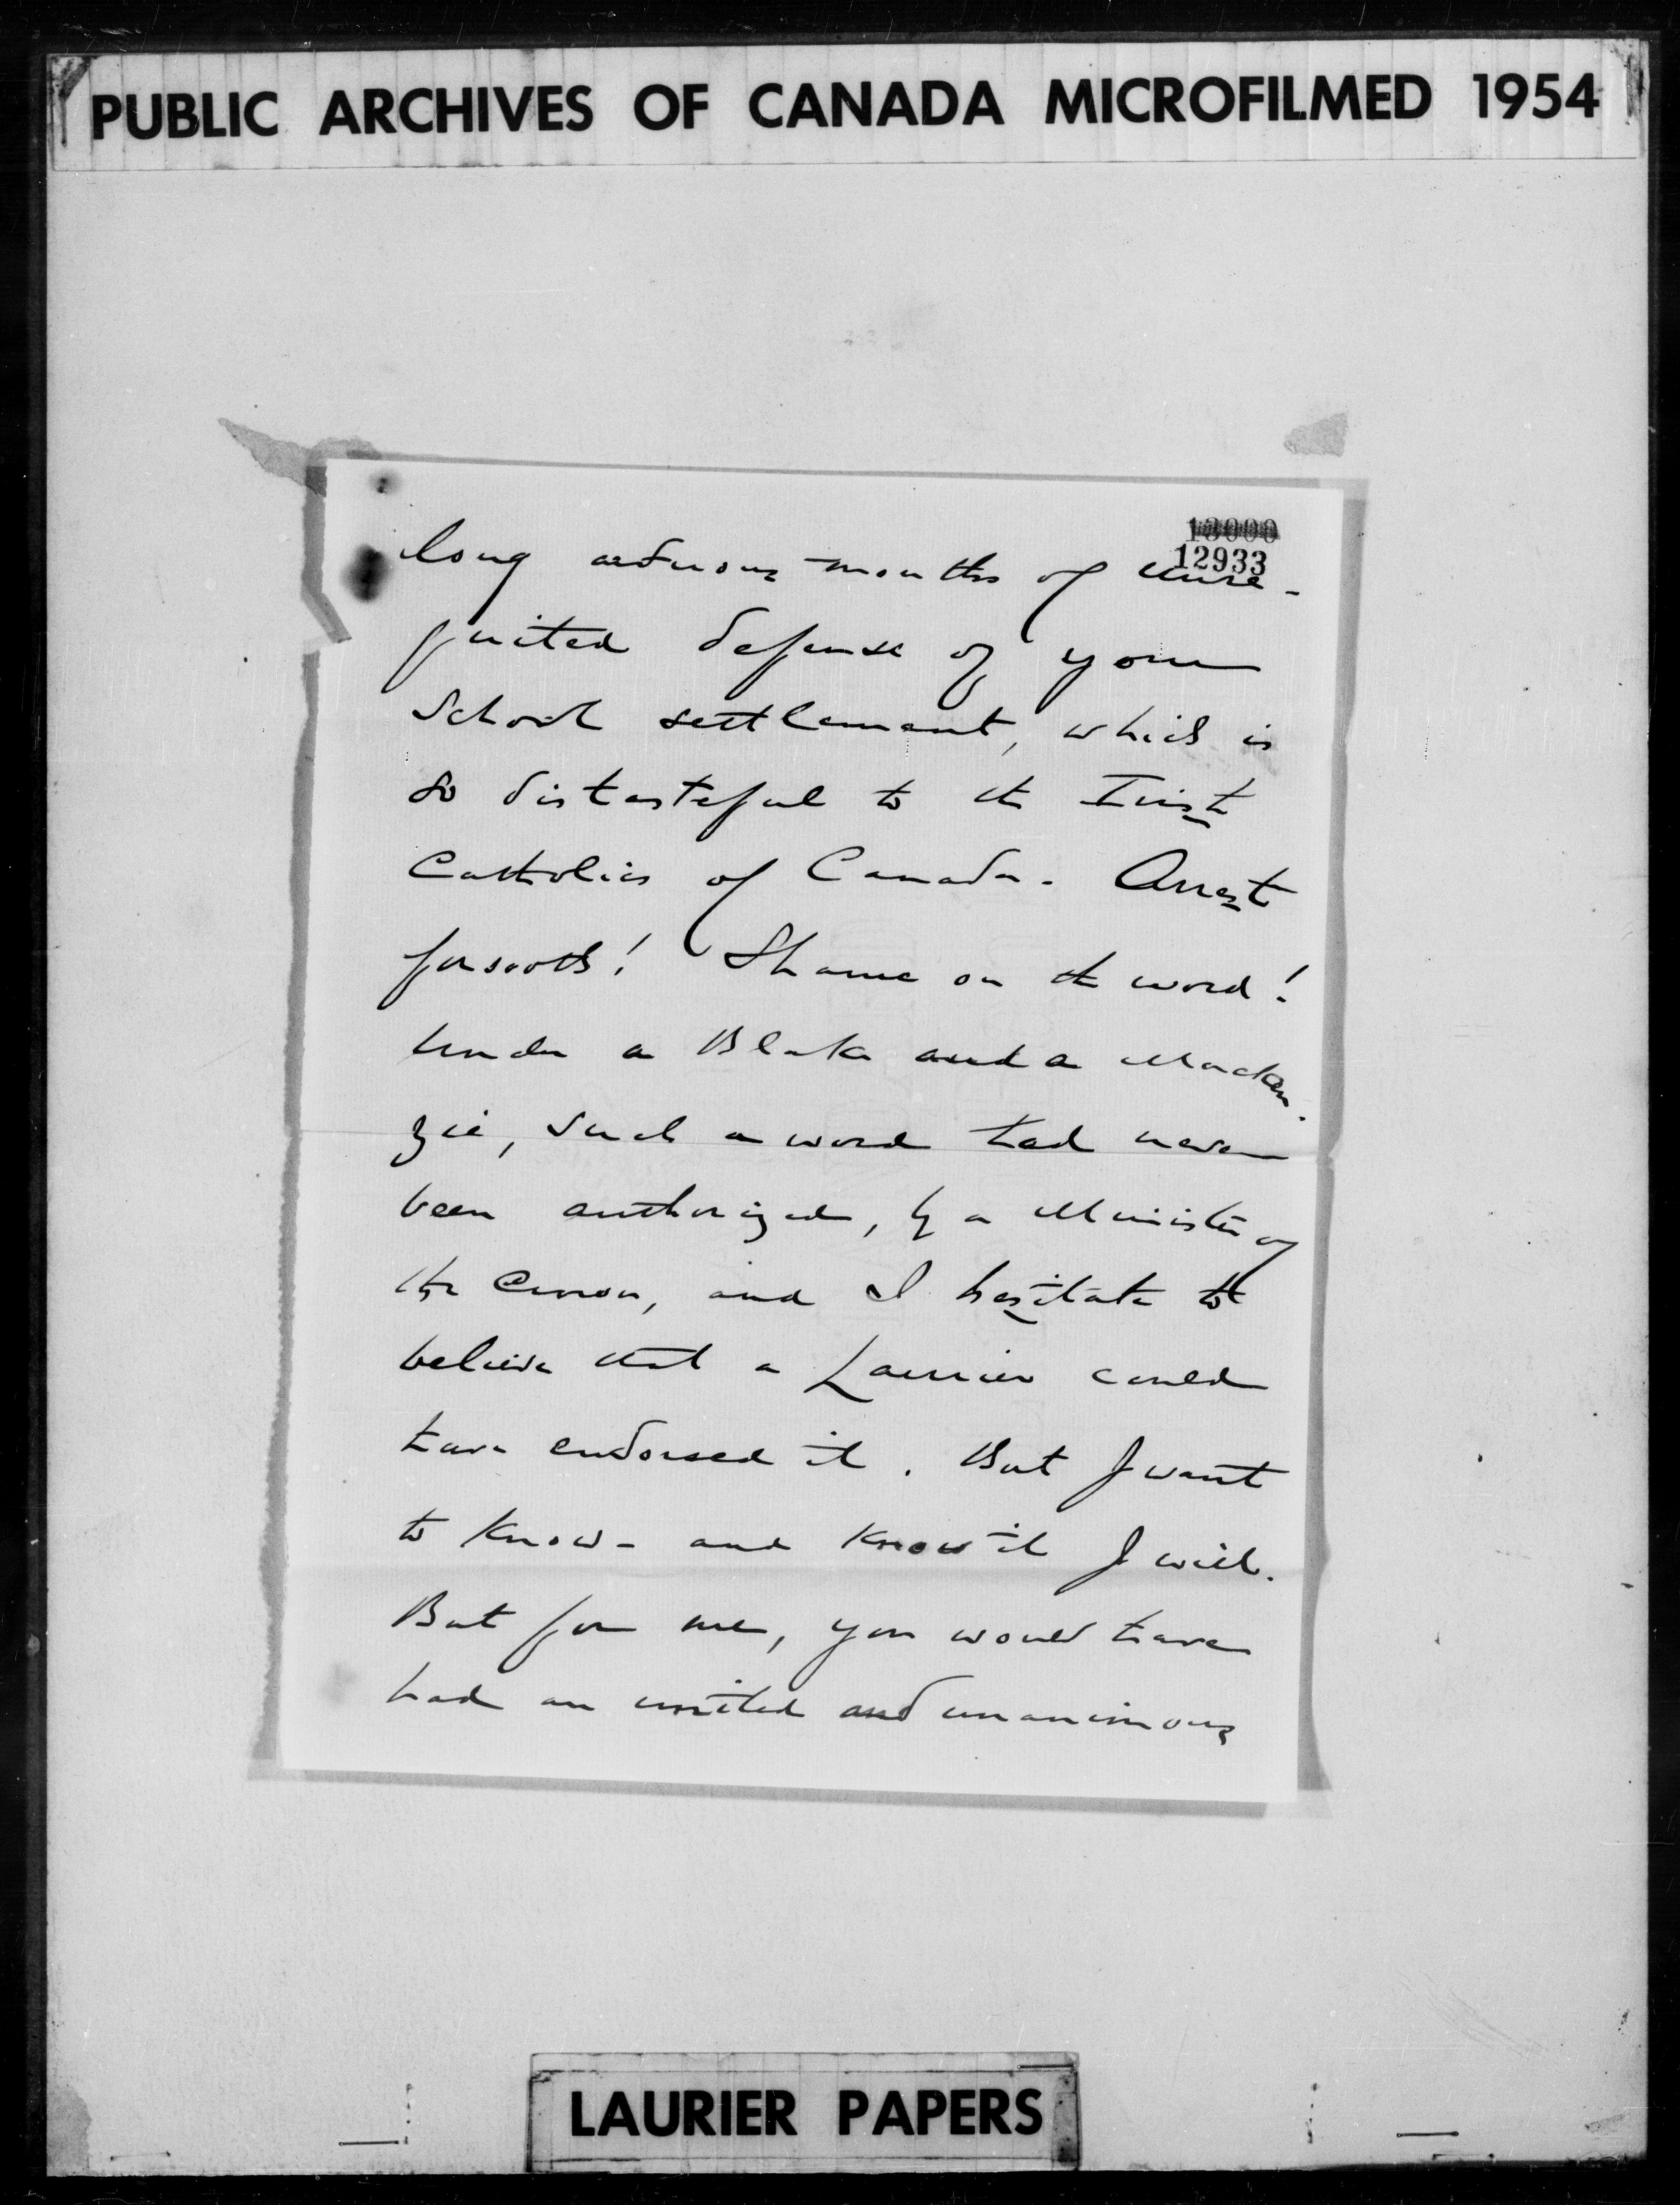 PUBLIC ARCHIVES OF CANADA MICROFILMED 1954
13000
12933
long arduous months of unre-
quited defense of your
School settlement, which is
so distasteful to the Irish
Catholics of Canada. Arrest
forsooth! Shame on the word!
Under a Blake and a Macken-
zie, such a word had never
been authorized, by a Minister of
the Crown, and I hesitate to
believe that a Laurier could
have endorsed it. But I want
to know - and know it I will.
But for me, you would have
had an united and unanimous
LAURIER PAPERS